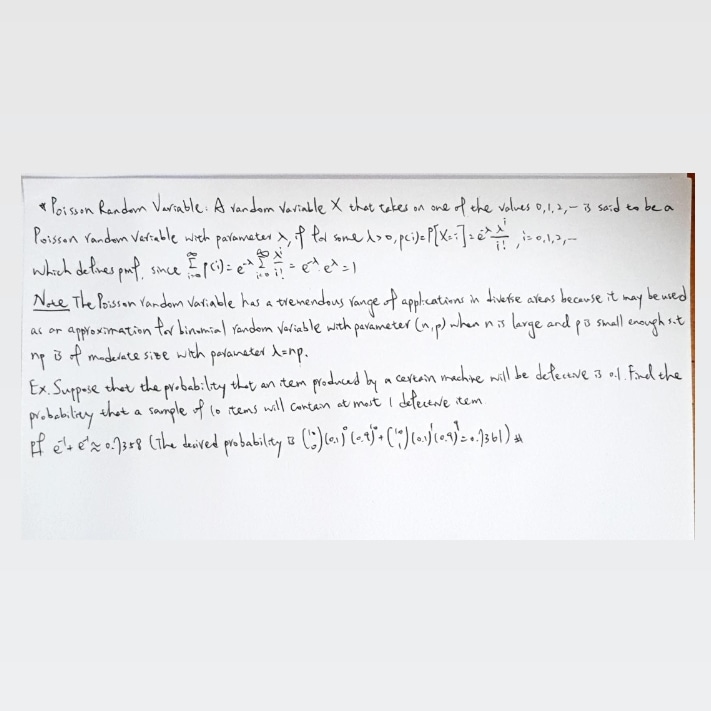 * Poisson Random Variable: A random variable X that takes on one of the values 0,1,2,-- is said to be a
Poisson random variable with parameter λ, if for some λ>0, p(i)=P[X=i]=e^{-λ} λ^i/i! , i=0,1,2,--
which defines pmf, since ∑_{i=0}^{∞} p(i)= e^{-λ} ∑_{i=0}^{∞} λ^i/i! = e^{-λ} e^{λ} =1
Note The Poisson random variable has a tremendous range of applications in diverse areas because it may be used
as an approximation for binomial random variable with parameter (n,p) when n is large and p is small enough s.t
np is of moderate size with parameter λ=np.
Ex. Suppose that the probability that an item produced by a certain machine will be defective is 0.1. Find the
probability that a sample of 10 items will contain at most 1 defective item
pf e^{-1}+e^{-1}≈0.7358 (The desired probability is (10 0)(0.1)^0(0.9)^{10}+(10 1)(0.1)^1(0.9)^9=0.7361)